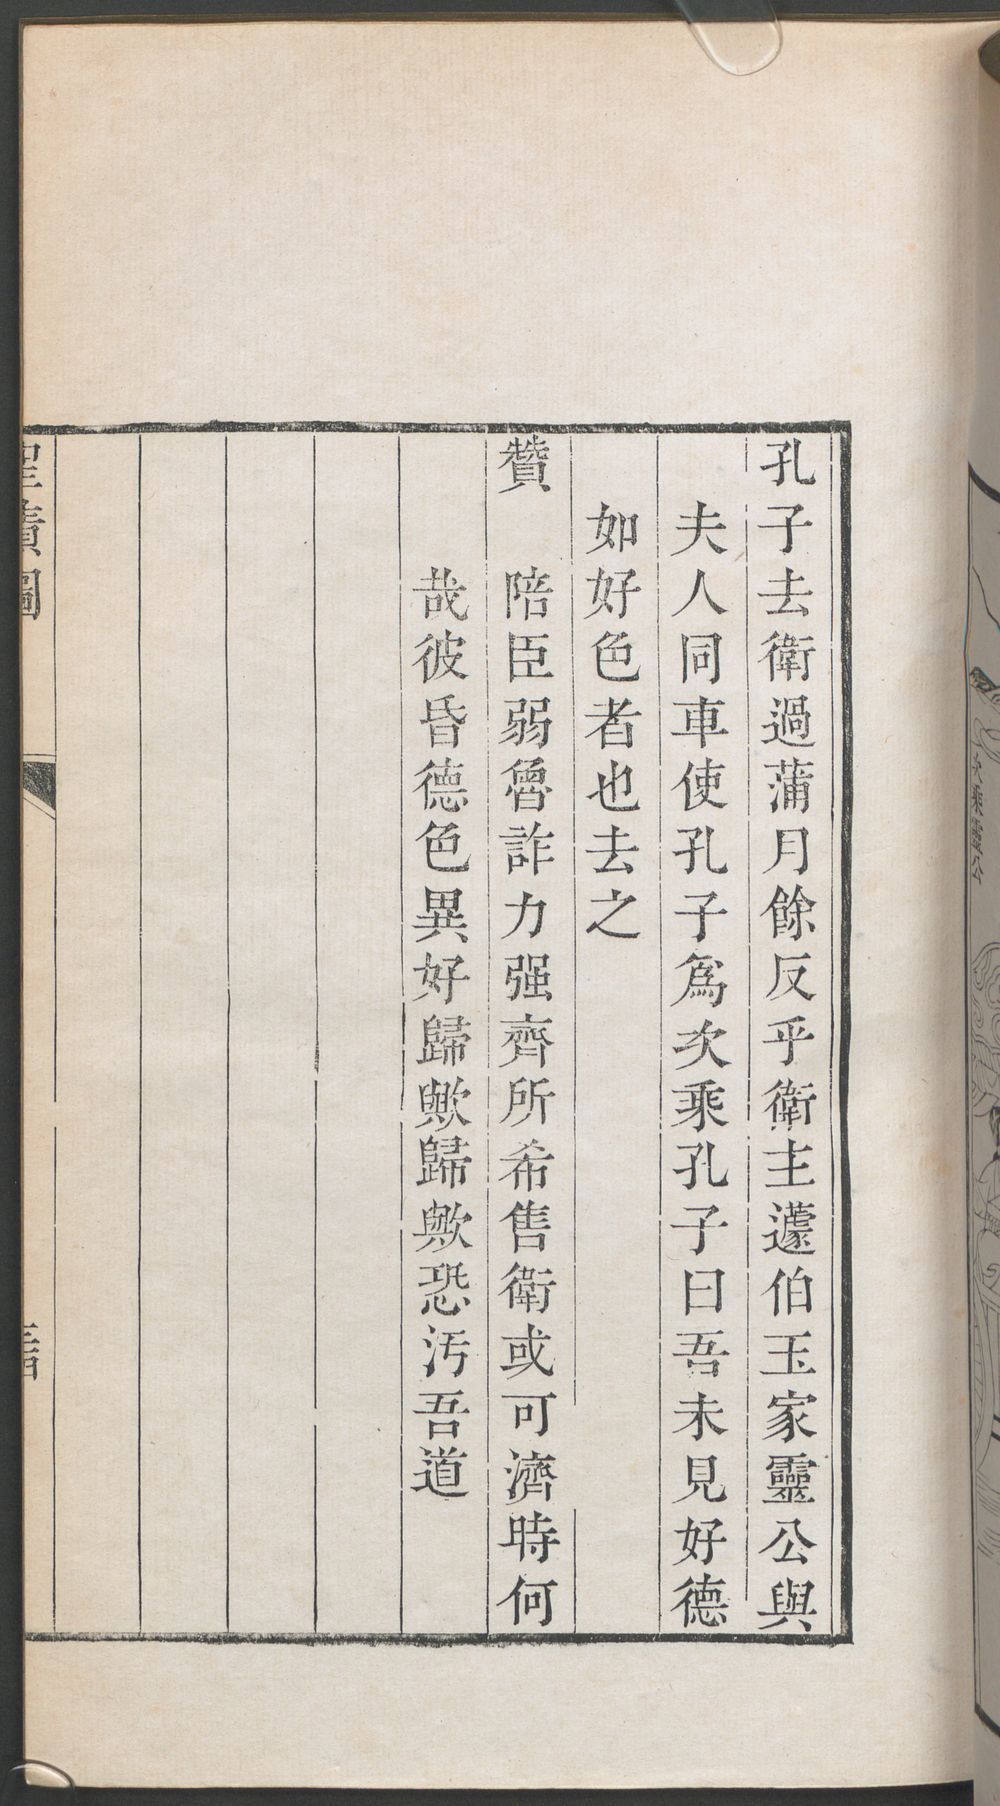 孔子去衛過蒲月餘反乎衛主蘧伯玉家靈公與
夫人同車使孔子為次乘孔子曰吾未見好德
如好色者也去之
贊　陪臣弱魯詐力强齊所希售衛或可濟時何
哉彼昏德色異好歸歟歸歟恐汚吾道
聖蹟圖
次乘靈公